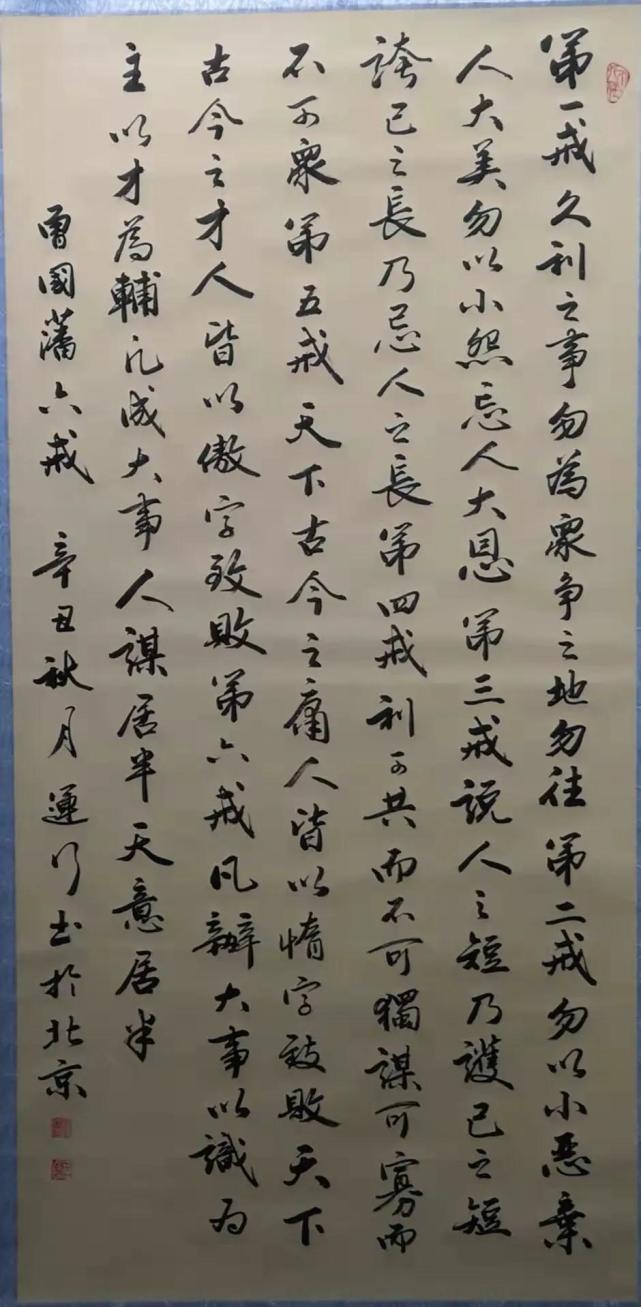 第一戒久利之事勿為衆争之地勿往第二戒勿以小惡棄
人大美勿以小怨忘人大恩第三戒説人之短乃護己之短
誇己之長乃忌人之長第四戒利可共而不可獨謀可寡而
不可衆第五戒天下古今之庸人皆以惰字致敗天下
古今之才人皆以傲字致敗第六戒凡辦大事以識為
主以才為輔凡成大事人謀居半天意居半
曾國藩六戒 辛丑秋月運行书於北京